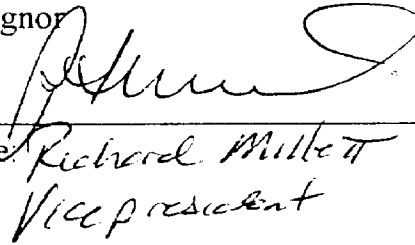 gnor
e Richard Millett
Vice president